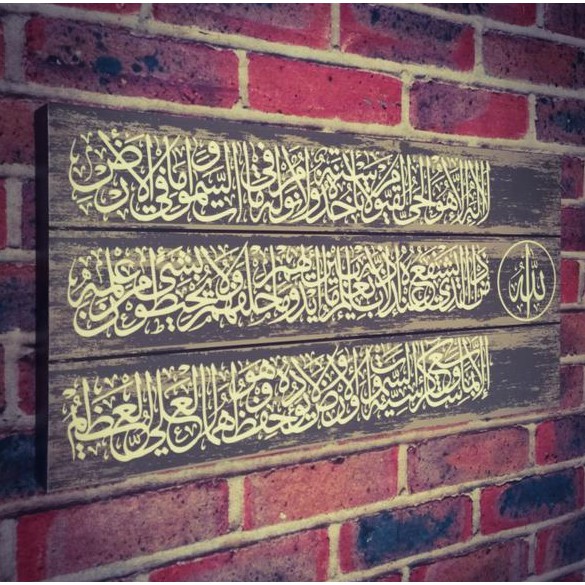 الله لا إله إلا هو الحي القيوم لا تأخذه سنة ولا نوم له ما في السموات وما في الأرض
من ذا الذي يشفع عنده إلا بإذنه يعلم ما بين أيديهم وما خلفهم ولا يحيطون بشيء من علمه
إلا بما شاء وسع كرسيه السموات والأرض ولا يؤده حفظهما وهو العلي العظيم
الله